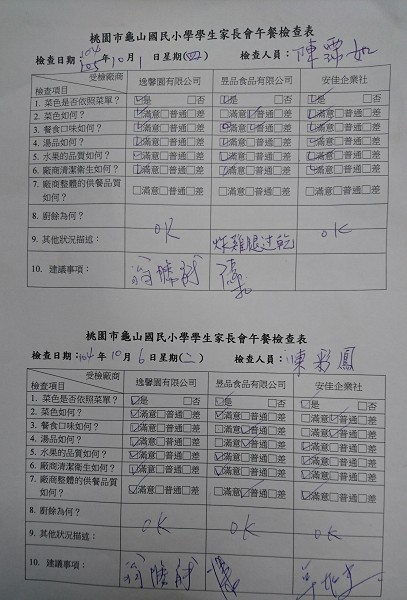 桃園市龜山國民小學學生家長會午餐檢查表
檢查日期：104年10月1日星期(四) 檢查人員：陳
受檢廠商 逸馨園有限公司 昱品食品有限公司 安佳企業社
檢查項目
1. 菜色是否依照菜單？ ☑是 □否 ☑是 □否 ☑是 □否
2. 菜色如何？ ☑滿意□普通□差 □滿意☑普通□差 ☑滿意□普通□差
3. 餐食口味如何？ ☑滿意□普通□差 ☑滿意□普通□差 ☑滿意□普通□差
4. 湯品如何？ ☑滿意□普通□差 ☑滿意□普通□差 ☑滿意□普通□差
5. 水果的品質如何？ ☑滿意□普通□差 ☑滿意□普通□差 ☑滿意□普通□差
6. 廠商清潔衛生如何？ ☑滿意□普通□差 ☑滿意□普通□差 ☑滿意□普通□差
7. 廠商整體的供餐品質如何？ □滿意□普通□差 □滿意□普通□差 □滿意□普通□差
8. 廚餘為何？
9. 其他狀況描述： OK 炸雞腿過乾 OK
10. 建議事項：
桃園市龜山國民小學學生家長會午餐檢查表
檢查日期：104年10月6日星期(二) 檢查人員：陳彩鳳
受檢廠商 逸馨園有限公司 昱品食品有限公司 安佳企業社
檢查項目
1. 菜色是否依照菜單？ ☑是 □否 ☑是 □否 ☑是 □否
2. 菜色如何？ ☑滿意□普通□差 ☑滿意□普通□差 □滿意☑普通□差
3. 餐食口味如何？ ☑滿意□普通□差 □滿意☑普通□差 □滿意☑普通□差
4. 湯品如何？ ☑滿意□普通□差 □滿意☑普通□差 ☑滿意□普通□差
5. 水果的品質如何？ ☑滿意□普通□差 □滿意☑普通□差 ☑滿意□普通□差
6. 廠商清潔衛生如何？ ☑滿意□普通□差 ☑滿意□普通□差 ☑滿意□普通□差
7. 廠商整體的供餐品質如何？ ☑滿意□普通□差 □滿意☑普通□差 ☑滿意□普通□差
8. 廚餘為何？
9. 其他狀況描述： OK OK OK
10. 建議事項：